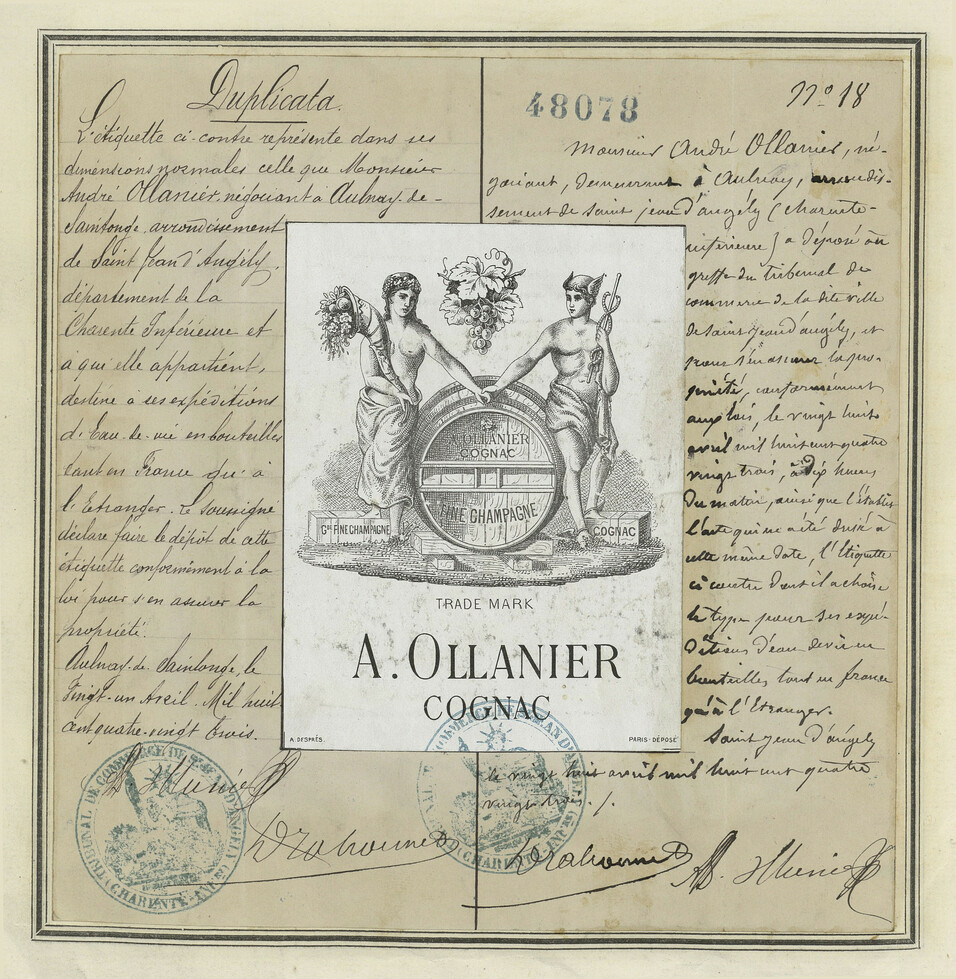 Duplicata.
L'étiquette ci-contre représente dans ses
dimensions normales celle que Monsieur
André Ollanier, négociant à Aulnay-de-
Saintonge, arrondissement
de Saint Jean d'Angély,
département de la
Charente Inférieure et
à qui elle appartient,
destine à ses expéditions
d'Eau-de-vie en bouteilles
tant en France qu'à
l'Etranger. Le soussigné
déclare faire le dépôt de cette
étiquette conformément à la
loi pour s'en assurer la
propriété.
Aulnay-de-Saintonge, le
Vingt-un Avril Mil huit
cent quatre-vingt trois.
TRIBUNAL DE COMMERCE DE St JEAN D'ANGELY
(CHARENTE-INFRE)
48078
No 18
Monsieur André Ollanier, né-
gociant, demeurant à Aulnay, arrondis-
sement de Saint jean d'angély (charente-
inférieure) a déposé au
greffe du tribunal de
commerce de la dite ville
de saint jean d'angély, et
pour s'en assurer la pro-
priété, conformément
aux lois, le vingt huit
avril mil huit cent quatre
vingt trois, à dix heures
du matin, ainsi que l'établit
l'acte qui en a été dressé à
cette même date, l'Etiquette
ci contre dont il a choisi
le type pour ses expé-
ditions d'eau de vie en
bouteilles tant en france
qu'à l'Etranger.
Saint Jean d'angély
le vingt huit avril mil huit cent quatre
vingt trois ./.
A. OLLANIER
COGNAC
FINE CHAMPAGNE
Gde FINE CHAMPAGNE
COGNAC
TRADE MARK
A. OLLANIER
COGNAC
A DESPRÉS.
PARIS-DÉPOSÉ